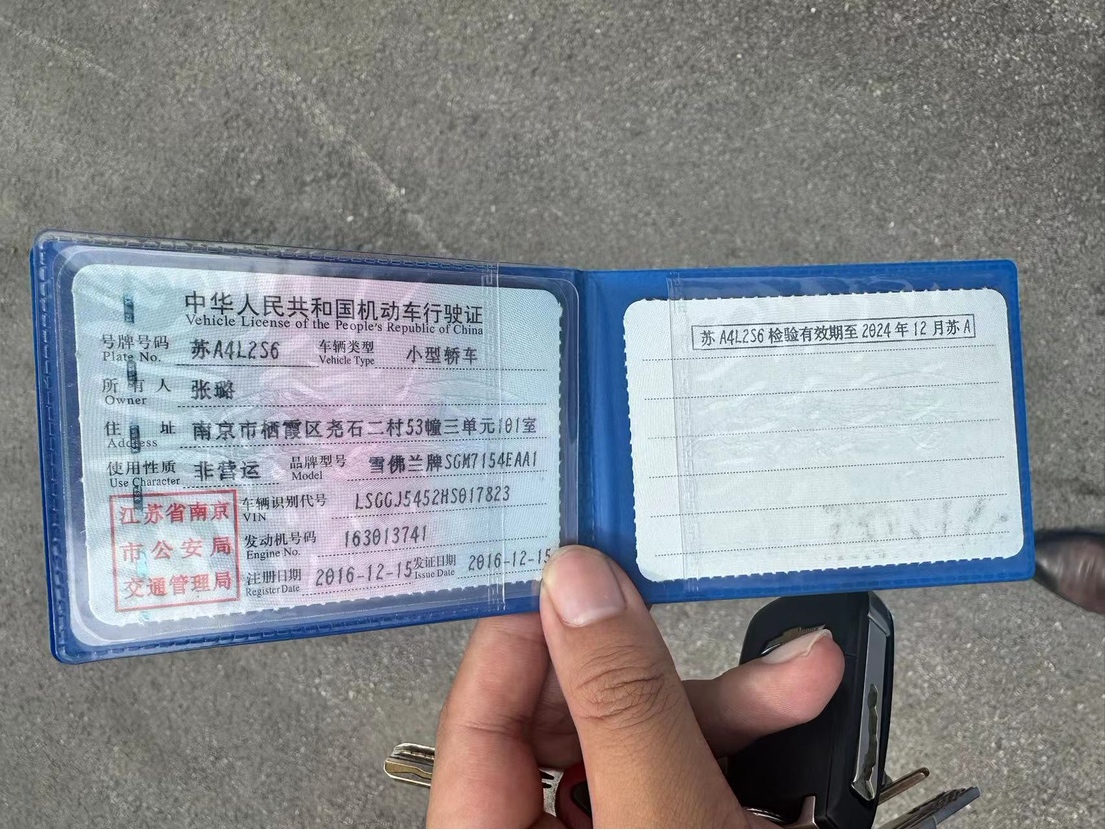 中华人民共和国机动车行驶证
Vehicle License of the People's Republic of China
号牌号码 苏A4L2S6 车辆类型 小型轿车
Plate No. Vehicle Type
所有人 张璐
Owner
住址 南京市栖霞区尧石二村53幢三单元101室
Address
使用性质 非营运 品牌型号 雪佛兰牌SGM7154EAA1
Use Character Model
江苏省南京
市公安局
交通管理局
车辆识别代号 LSGGJ5452HS017823
VIN
发动机号码 163013741
Engine No.
注册日期 2016-12-15 发证日期 2016-12-15
Register Date Issue Date
苏A4L2S6检验有效期至2024年12月苏A